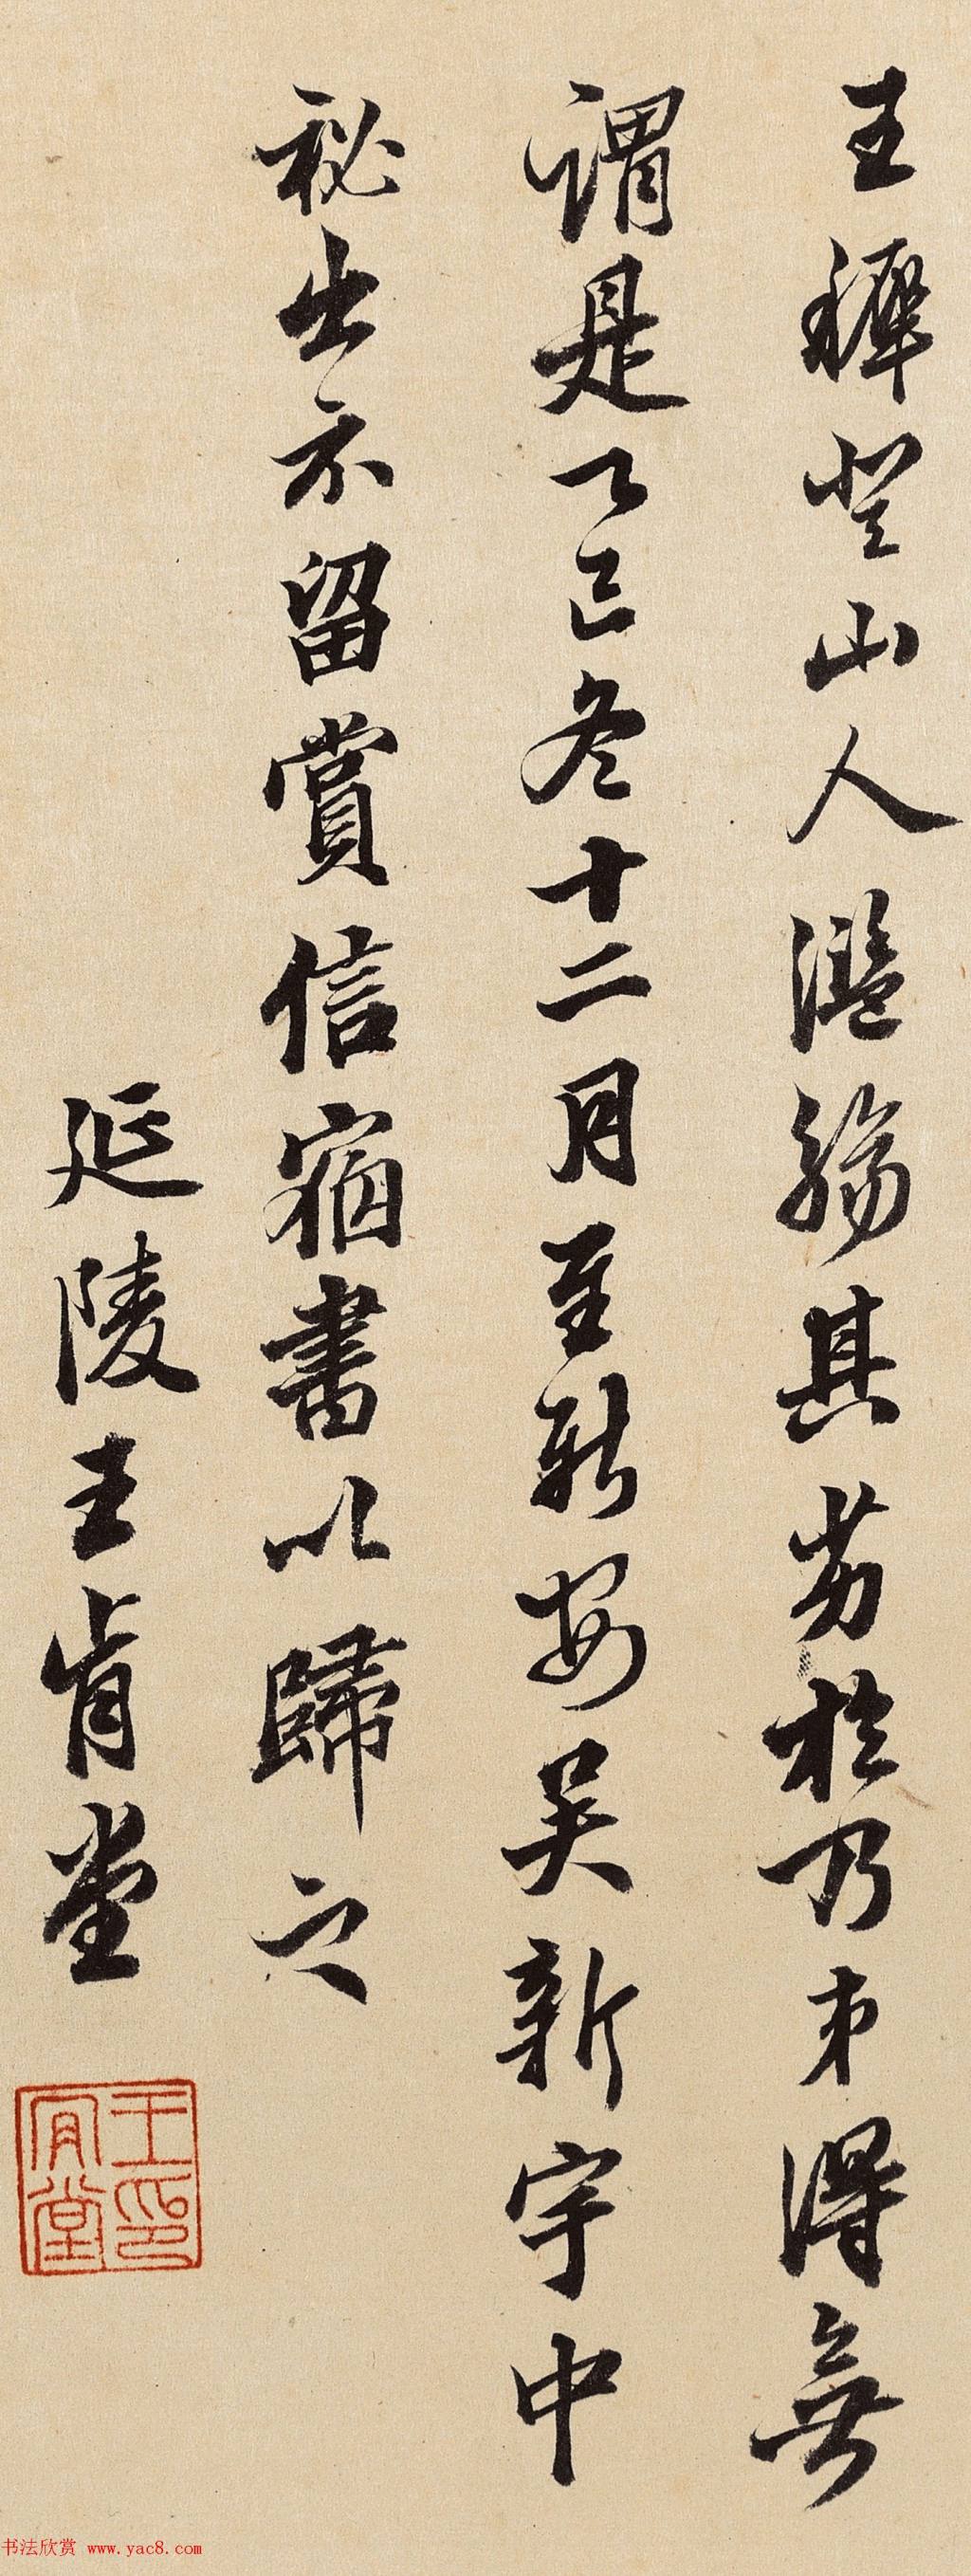 王穉登山人濫觴其於乃弟得無
謂是乙巳冬十二月至新安吳新宇中
祕出示留賞信宿書以歸之
延陵王肯堂
王肯堂印
书法欣赏 www.yac8.com